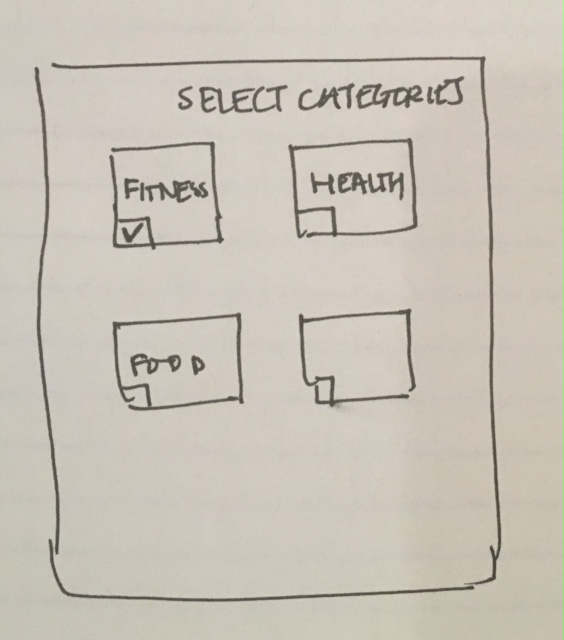 SELECT CATEGORIES
FITNESS
HEALTH
FOOD